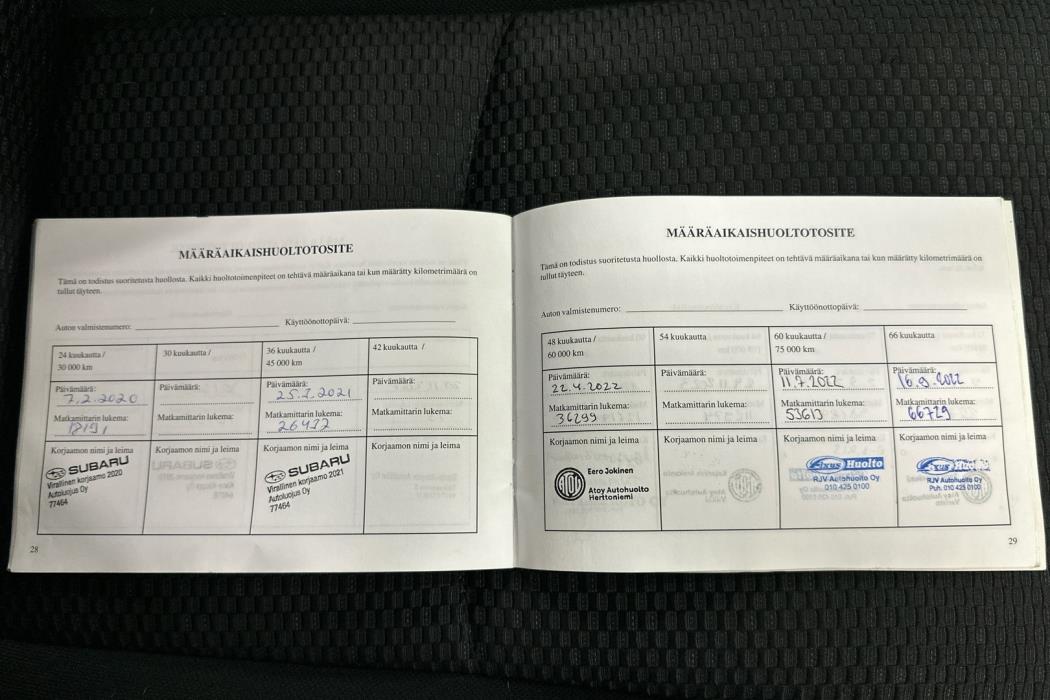 MÄÄRÄAIKAISHUOLTOTOSITE
Tämä on todistus suoritetusta huollosta. Kaikki huoltotoimenpiteet on tehtävä määräaikana tai kun määrätty kilometrimäärä on
tullut täyteen.
Auton valmistenumero:
Käyttöönottopäivä:
24 kuukautta /
30 000 km
30 kuukautta /
36 kuukautta /
45 000 km
42 kuukautta /
Päivämäärä:
7.2.2020
Päivämäärä:
Päivämäärä:
25.2.2021
Päivämäärä:
Matkamittarin lukema:
Matkamittarin lukema:
Matkamittarin lukema:
26432
Matkamittarin lukema:
Korjaamon nimi ja leima
SUBARU
Virallinen korjaamo 2020
Autoluojus Oy
77464
Korjaamon nimi ja leima
Korjaamon nimi ja leima
SUBARU
Virallinen korjaamo 2021
Autoluojus Oy
77464
Korjaamon nimi ja leima
28
MÄÄRÄAIKAISHUOLTOTOSITE
Tämä on todistus suoritetusta huollosta. Kaikki huoltotoimenpiteet on tehtävä määräaikana tai kun määrätty kilometrimäärä on
tullut täyteen.
Auton valmistenumero:
Käyttöönottopäivä:
48 kuukautta /
60 000 km
54 kuukautta
60 kuukautta /
75 000 km
66 kuukautta
Päivämäärä:
22.4.2022
Päivämäärä:
Päivämäärä:
11.7.2022
Päivämäärä:
16.9.2022
Matkamittarin lukema:
36299
Matkamittarin lukema:
Matkamittarin lukema:
53613
Matkamittarin lukema:
66729
Korjaamon nimi ja leima
AOL
Eero Jokinen
Atoy Autohuolto
Herttoniemi
Korjaamon nimi ja leima
Korjaamon nimi ja leima
Fixus Huolto
RJV Autohuolto Oy
010 425 0100
Korjaamon nimi ja leima
Fixus Huolto
RJV Autohuolto Oy
Puh. 010 425 0100
29